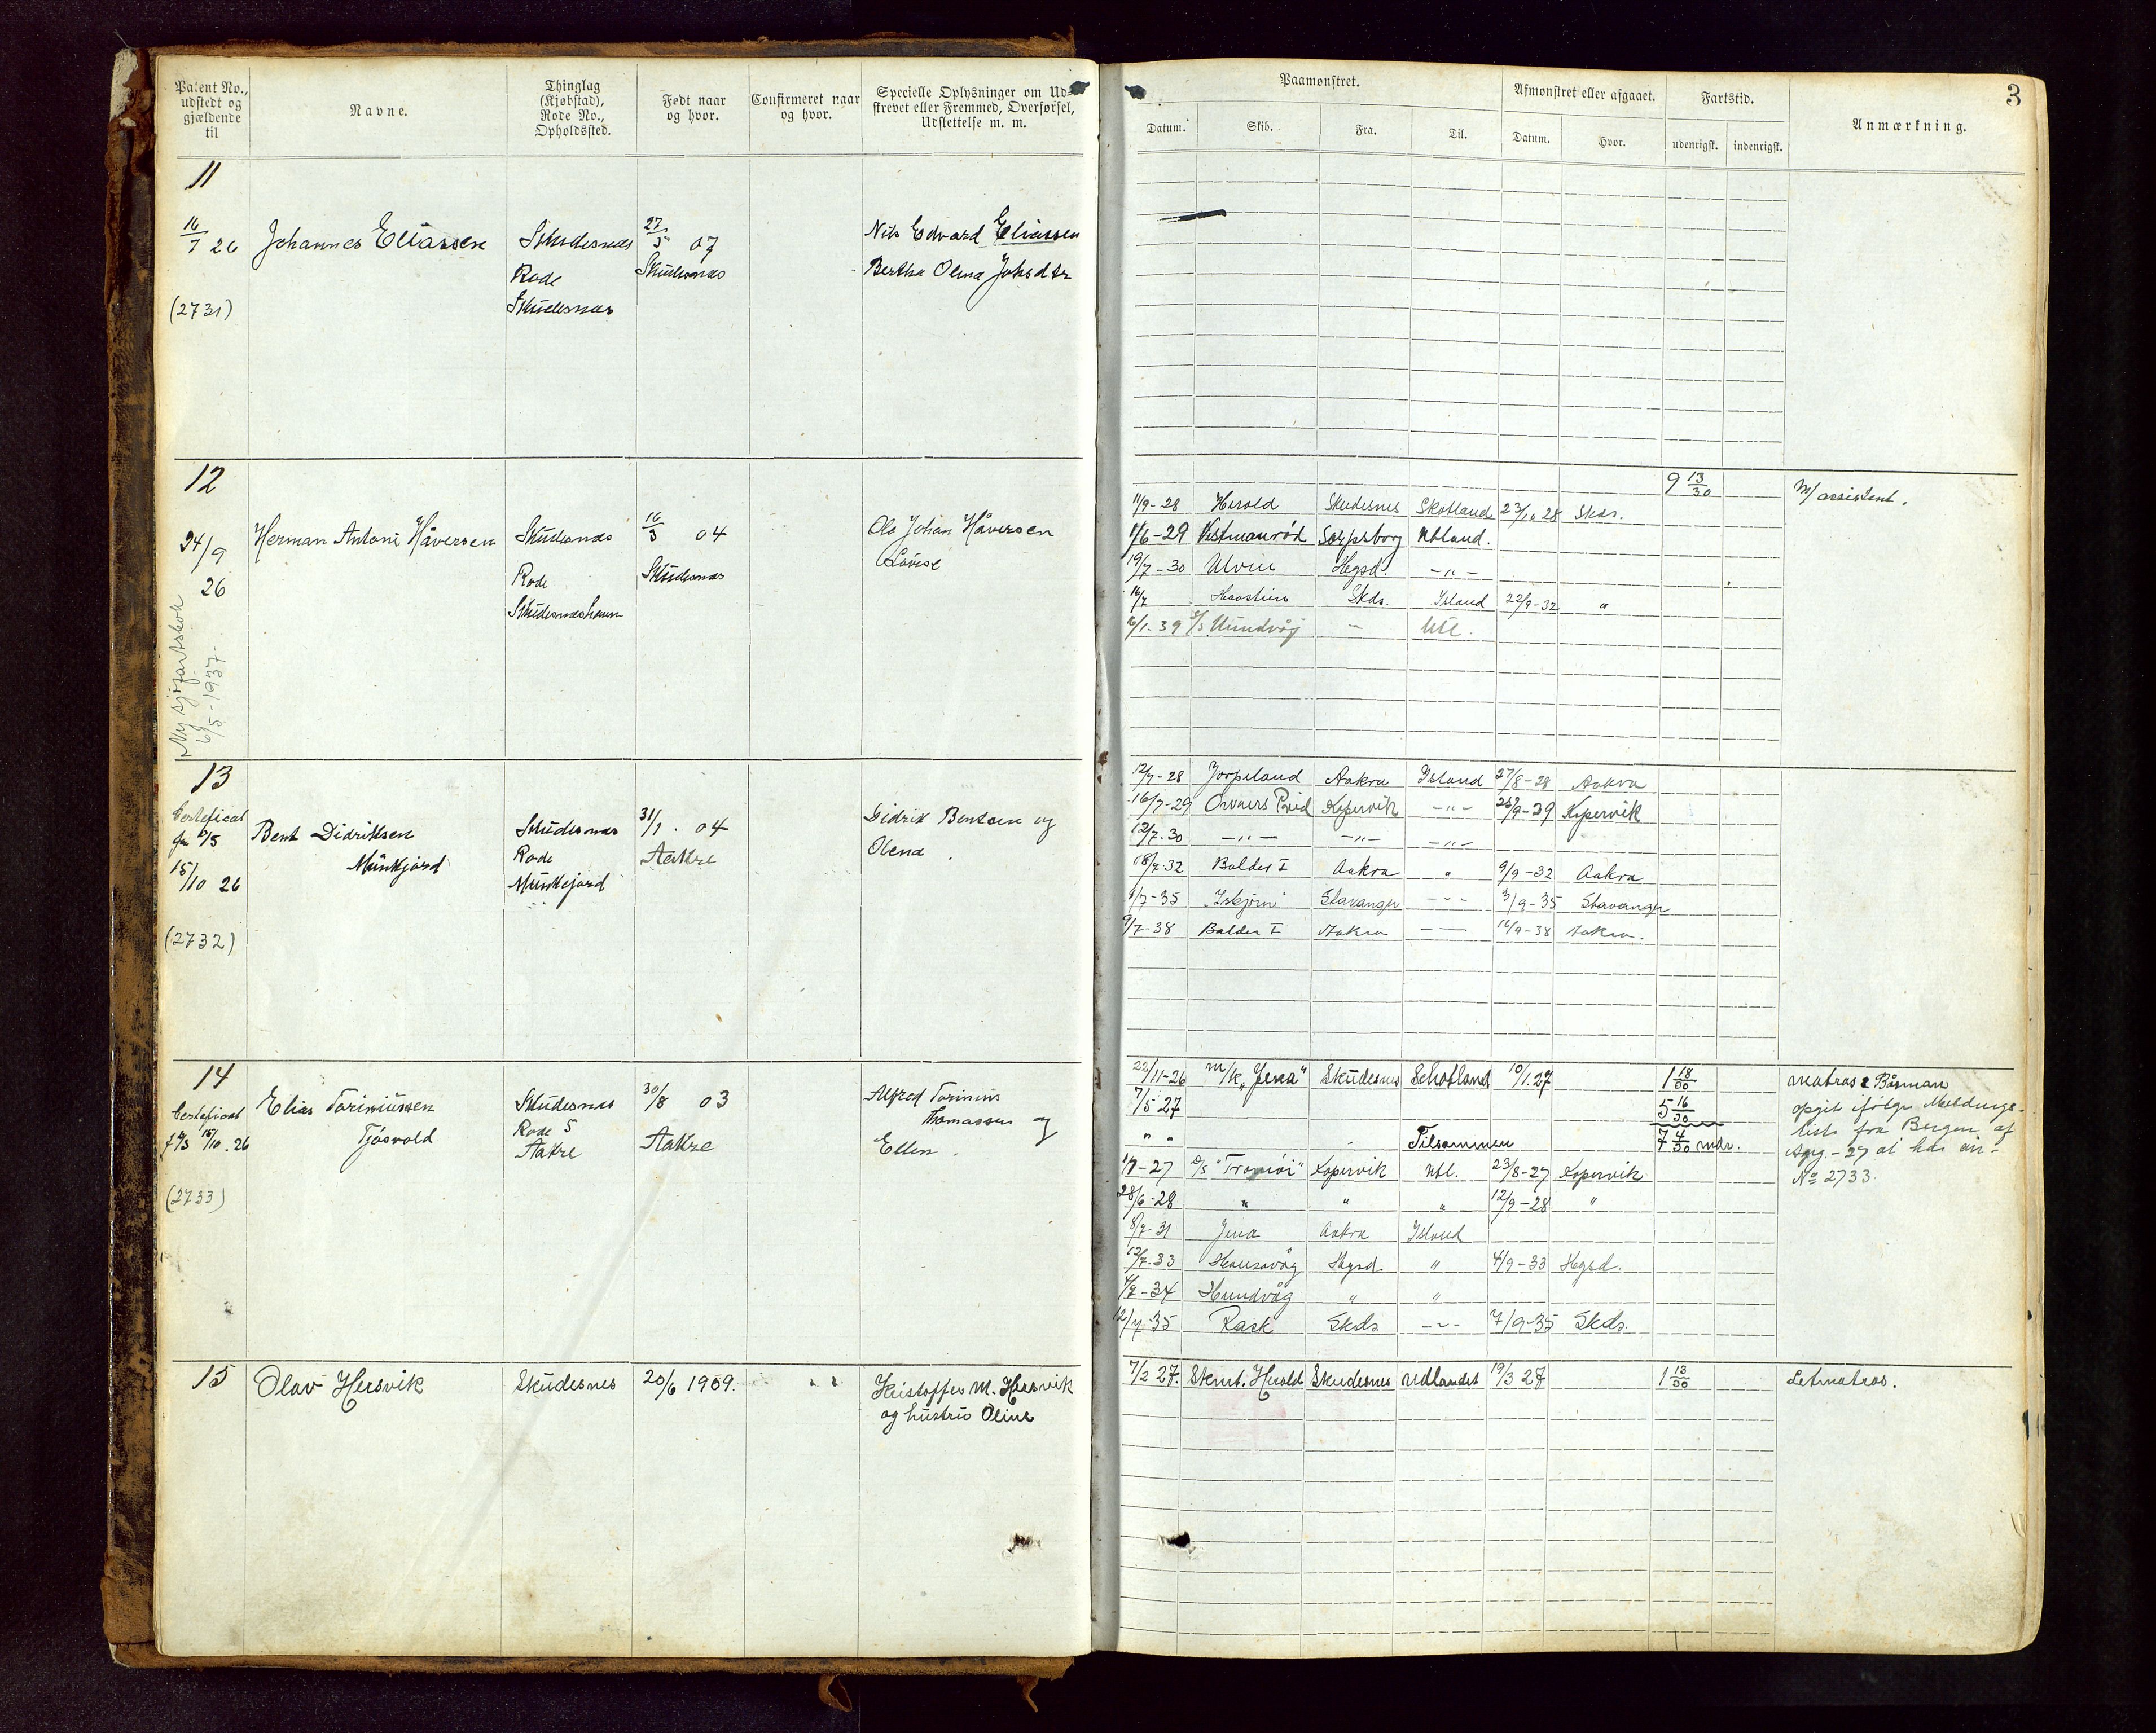 Patent No., udstedt og gjældende til
Navne.
Thinglag (Kjøbstad), Rode No., Opholdssted.
Født naar og hvor.
Confirmeret naar og hvor.
Specielle Oplysninger om Udskrevet eller Fremmed, Overførsel, Udslettelse m. m.
Paamønstret.
Afmønstret eller afgaaet.
Fartstid.
Anmærkning.
3
Datum.
Skib.
Fra.
Til.
Datum.
Hvor.
udenrigsk.
indenrigsk.
11
16/7 26 Johannes Eliassen Skudesnæs 27/5 07 Nils Edvard Eliassen
Rode Skudesnæs Bertha Olena Johsdtr
(2731) Skudesnæs
12
24/9 26 Herman Antoni Håversen Skudesnæs 16/3 04 Ole Johan Håversen
Rode Skudesnæs Lovise
Skudesnæshavn
Ny sjøfartsbok 6/5-1937
9 13/30 M/assistent.
11/9-28 Herold Skudesnes Skotland 23/10 28 Skds.
1/6-29 Vestmanrød Sarpsborg Utland.
19/7-30 Ulven Hgsd. -"-
16/7 Havstein Skds. Island 22/9-32 "
6/1-39 S/S Hundvåg - Utl.
13
Certefisat fra 6/5 Bent Didriksen Skudesnæs 31/1. 04 Didrik Bentsen og
Munkjord Rode Aakre Olena
15/10 26 Munkejord
(2732)
12/7-28 Jørpeland Aakra Island 27/8-28 Aakra
16/7-29 Brødrs Prid Kopervik -"- 25/9-29 Kopervik
12/7-30 -"- -"- -"-
8/7-32 Balder I Aakra " 9/9-32 Aakra
4/7-35 "Isbjørn" Stavanger -"- 3/9-35 Stavanger
9/7-38 Balder I Aakra -- 16/9-38 Aakra.
14
Certefisat Elias Toriniussen Skudesnæs 30/8 03 Alfred Torinius
Tjøsvold Rode 5 Thomassen og
15/10.26 Aakre Aakre Ellen
(2733)
22/11-26 m/k "Jena" Skudesnes Schotland 10/1.27 1 18/30 matros & Båsman
7/5 27 5 16/30 opgit ifølge Meldings-
" " Tilsammen 7 4/30 mdr. liste fra Bergen af
1/7-27 D/S "Tromöi" Kopervik Utl. 23/8-27 Kopervik Apg.-27 at ha
28/6-28 " " " 12/9-28 " No 2733.
8/7-31 Jena Aakra Island
12/7-33 Hausavåg Hgsd. " 4/9-33 Hgsd.
4/7-34 Hundvåg " "
12/7-35 Rask Skds. -"- 7/9-35 Skds.
15 Olav Hersvik Skudesnes 20/6 1909. Kristoffer M. Hersvik
og hustru Oline
7/2 27. Skmt. Herold Skudesnes Udlandet 19/3 27 1 13/30 Letmatros.